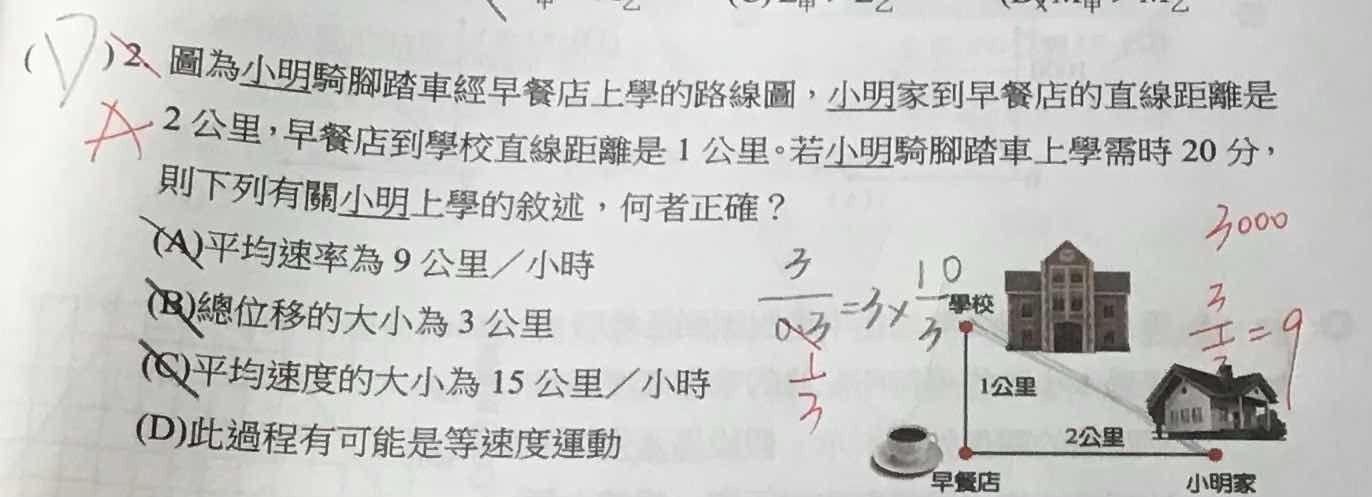 (D) 2. 圖為小明騎腳踏車經早餐店上學的路線圖，小明家到早餐店的直線距離是
A 2 公里，早餐店到學校直線距離是 1 公里。若小明騎腳踏車上學需時 20 分，
則下列有關小明上學的敘述，何者正確？
(A)平均速率為 9 公里／小時
(B)總位移的大小為 3 公里
(C)平均速度的大小為 15 公里／小時
(D)此過程有可能是等速度運動
3/0.3=3×10/3
1/3
3000
3/(1/3)=9
學校
1公里
2公里
早餐店
小明家